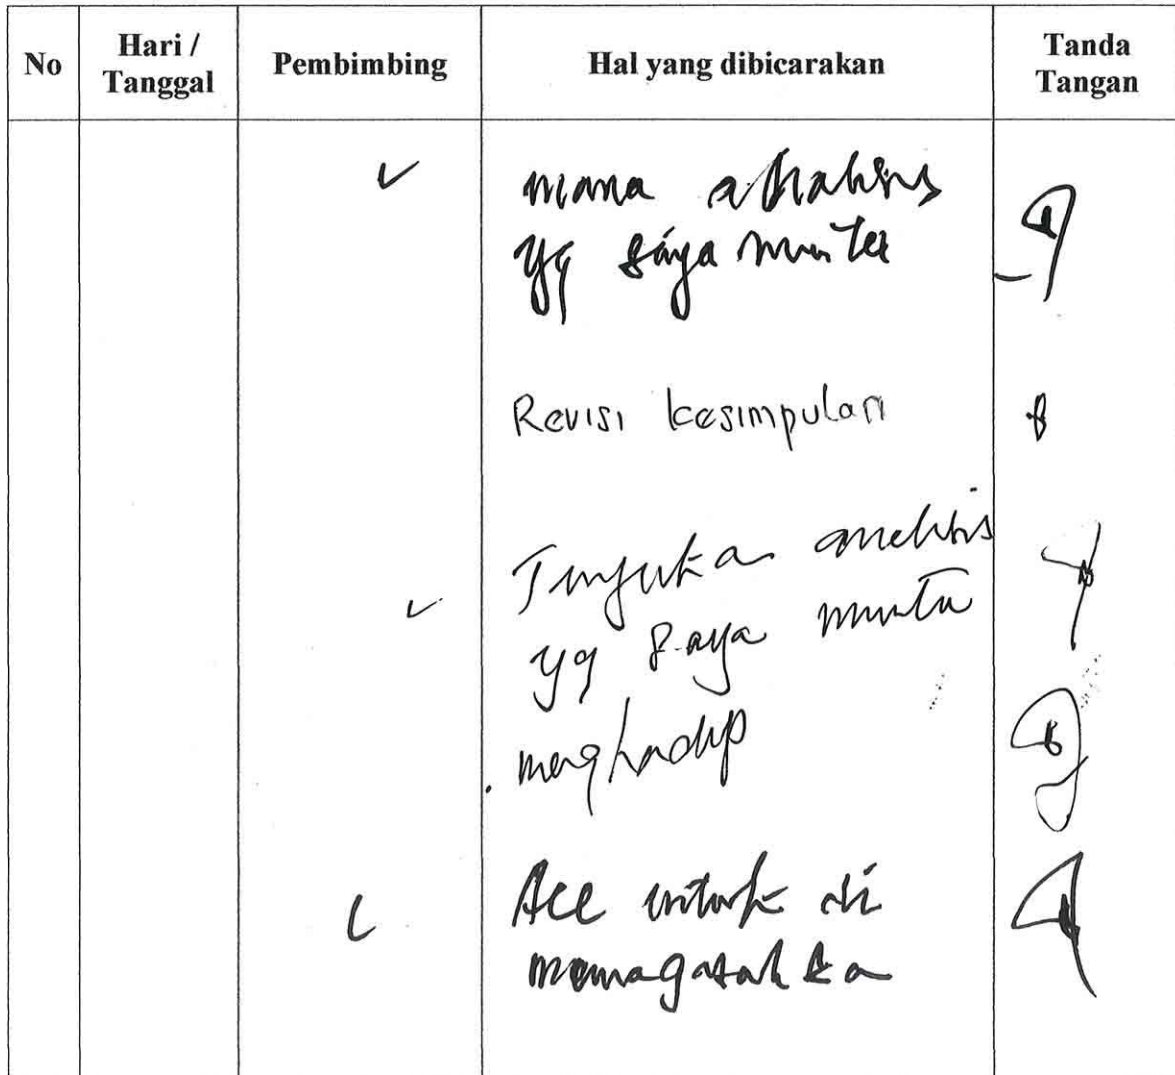 No
Hari /
Tanggal
Pembimbing
Hal yang dibicarakan
Tanda
Tangan
mana analisis
yg saya minta
Revisi kesimpulan
Tunjukan analisis
yg saya minta
menghadap
Acc untuk di